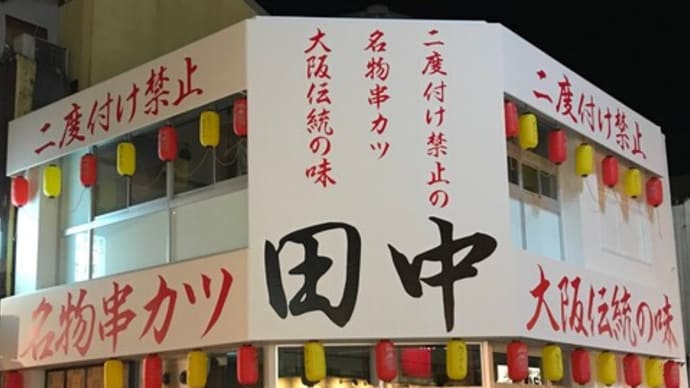 二度付け禁止
名物串カツ
二度付け禁止の
名物串カツ
大阪伝統の味
田中
二度付け禁止
大阪伝統の味